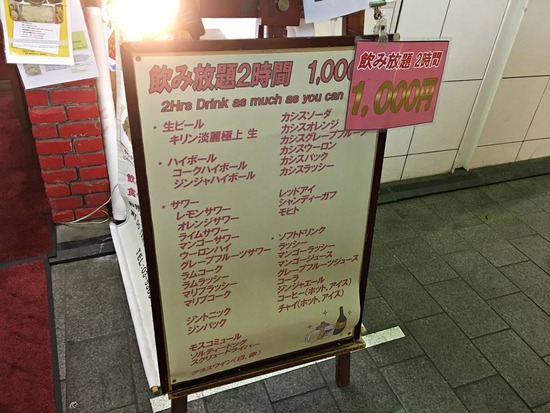 飲み放題2時間 1,000
2Hrs Drink as much as you can
飲み放題 2時間
1,000円
・生ビール
キリン淡麗極上 生
・ハイボール
コークハイボール
ジンジャハイボール
・サワー
レモンサワー
オレンジサワー
ライムサワー
マンゴーサワー
ウーロンハイ
グレープフルーツサワー
ラムコーク
ラムラッシー
マリブラッシー
マリブコーク
ジントニック
ジンバック
モスコミュール
ソルティードッグ
スクリュードライバー
グラスワイン(白、赤)
カシスソーダ
カシスオレンジ
カシスグレープフルーツ
カシスウーロン
カシスバック
カシスラッシー
レッドアイ
シャンディーガフ
モヒト
・ソフトドリンク
ラッシー
マンゴーラッシー
マンゴージュース
グレープフルーツジュース
コーラ
ジンジャエール
コーヒー(ホット、アイス)
チャイ(ホット、アイス)